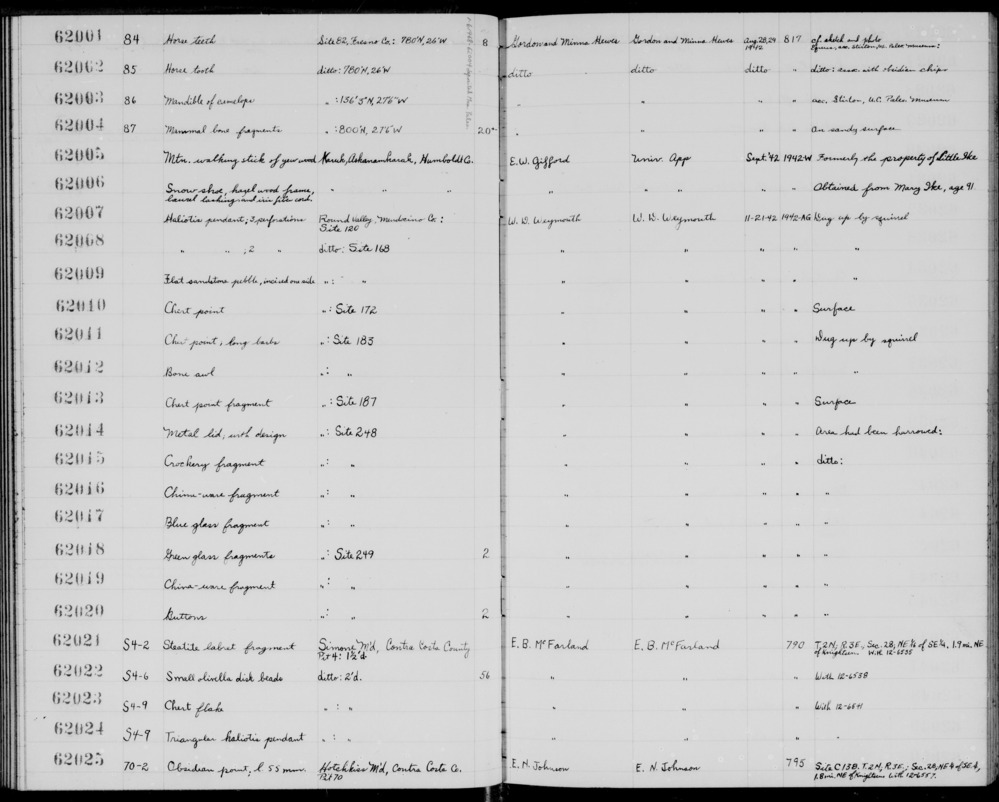 62001 84 Horse teeth Site 82, Fresno Co.: 780'N, 26'W 8 Gordon and Minna Hewes Gordon and Minna Hewes Aug 28,29 1942 817 cf. sketch and photo
62002 85 Horse tooth ditto: 780'N, 26'W ditto ditto ditto " ditto: assoc. with obsidian chips
62003 86 Mandible of camelops " : 136'5"N, 276'W " " " " acc. Stirton, U.C. Paleo. Museum
62004 87 Mammal bone fragments " : 800'N, 276'W 20 " " " " On sandy surface
62005 Mtn. walking stick of yew wood Karuk, Ashanamkarak, Humboldt Co. E.W. Gifford Univ. App Sept. '42 1942-W Formerly the property of Little Ike
62006 Snow shoe, hazel wood frame, " " " " " " " " Obtained from Mary Ike, age 91
laurel lashing and iris fiber cord.
62007 Haliotis pendant; 3 perforations Round Valley, Mendocino Co: W. D. Weymouth W. D. Weymouth 11-21-42 1942-AG Dug up by squirrel
Site 120
62008 " " ; 2 " ditto: Site 168 " " " " " "
62009 Flat sandstone pebble, incised one side " : " " " " " "
62010 Chert point " : Site 172 " " " " Surface
62011 Chert point, long barbs " : Site 183 " " " " Dug up by squirrel
62012 Bone awl " : " " " " " "
62013 Chert point fragment " : Site 187 " " " " Surface
62014 Metal lid, with design " : Site 248 " " " " Area had been harrowed:
62015 Crockery fragment " : " " " " " ditto:
62016 China-ware fragment " : " " " " " "
62017 Blue glass fragment " : " " " " " "
62018 Green glass fragments " : Site 249 2 " " " " "
62019 China-ware fragment " : " " " " " "
62020 Buttons " : " 2 " " " " "
62021 S4-2 Steatite labret fragment Simone M'd, Contra Costa County E. B. McFarland E. B. McFarland 790 T.2N, R.3E., Sec. 28, NE¼ of SE¼, 1.9 mi. NE
Pit 4: 1½'d. of Knightsen W.H. 12-6535
62022 S4-6 Small olivella disk beads ditto: 2'd. 56 " " " With 12-6538
62023 S4-9 Chert flake " : " " " " With 12-6541
62024 S4-9 Triangular haliotis pendant " : " " " " "
62025 70-2 Obsidian point; l 55 mm. Hotchkiss M'd, Contra Costa Co. E. N. Johnson E. N. Johnson 795 Site C138. T.2N, R.3E.; Sec. 28, NE¼ of SE¼,
Pit 70 1.8 mi. NE of Knightsen. With 12-6557.